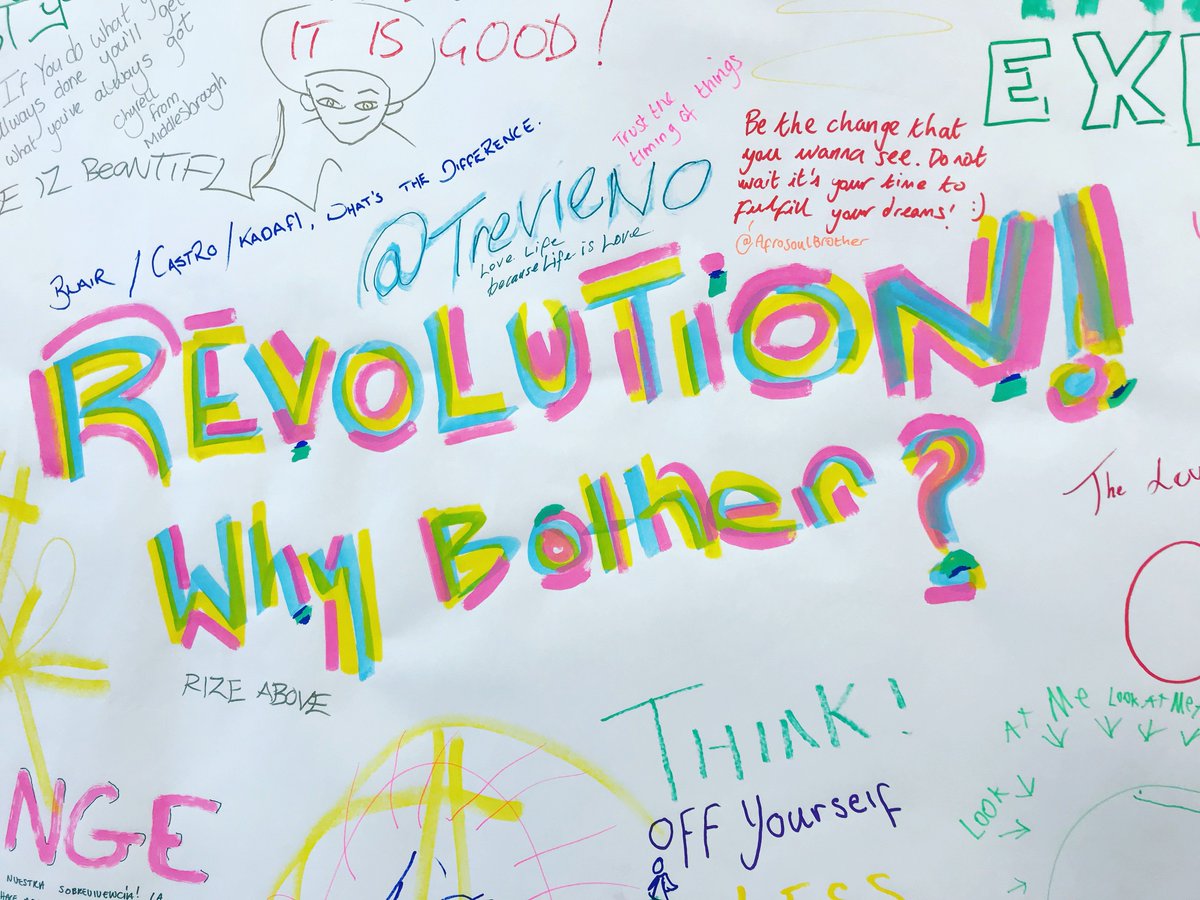 IT IS GOOD!
If You do what you
always done you'll get
what you've always got
Chyrell
from
Middlesbrough
IZ BEAUTIFL
EX
Trust the
timing of things
Be the change that
you wanna see. Do not
wait it's your time to
fulfill your dreams! :)
@AfrosoulBrother
BLAIR / CASTRO / KADAFI, WHAT'S THE DIFFERENCE.
@TrevieNO
Love Life
because Life is Love
REVOLUTION!
Why Bother?
The
RIZE ABOVE
THINK!
OFF Yourself
LESS
At Me Look At Me
LOOK
NGE
NUESTRA SOBREVIVENCIA! LA